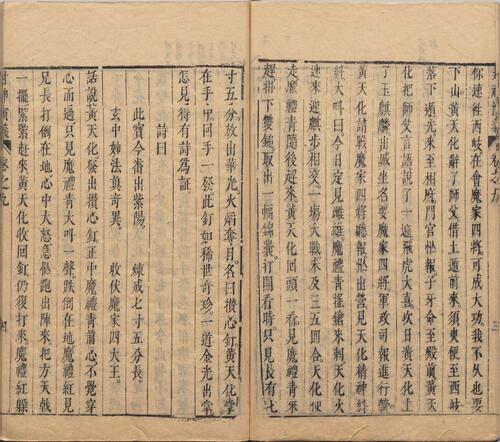 你速往西岐在會魔家四將可成大功我不久也
下山黃天化辭了師父借土遁前來須臾便至西岐
落下遁光來至相府門官忙報子牙命至殿前黃天
化把師父言語說了一遍飛虎大喜次日黃天化上
了玉麒麟出城坐名要魔家四將軍政司報進行營
黃天化請戰魔家四將聽報忙出營見天化精神糾
糾大叫曰今日定見雌雄魔禮青搖鎗來刺天化火
速來迎麒步相交一塲大戰未及三五回合天化便
走魔禮青隨後趕來黃天化回頭一看見魔禮青來
趕掛下雙鎚取出一幅錦囊打開看時只見長有七
寸五分放出華光火焰奪目名曰攢心釘黃天化掌
在手中回手一發此釘如稀世奇珍一道金光出掌
怎見得有詩為証
詩曰
此寶今番出紫陽
煉成七寸五分長
玄中妙法眞奇異
收伏魔家四大王
話說黃天化發出攢心釘正中魔禮青前心不覺穿
心而過只見魔禮青大叫一聲跌倒在地魔禮紅見
兄長打倒在地心中大怒急忙跑出陣來把方天戟
一擺緊緊趕來黃天化收回釘仍復打來魔禮紅躲
封神演義
卷之九
四